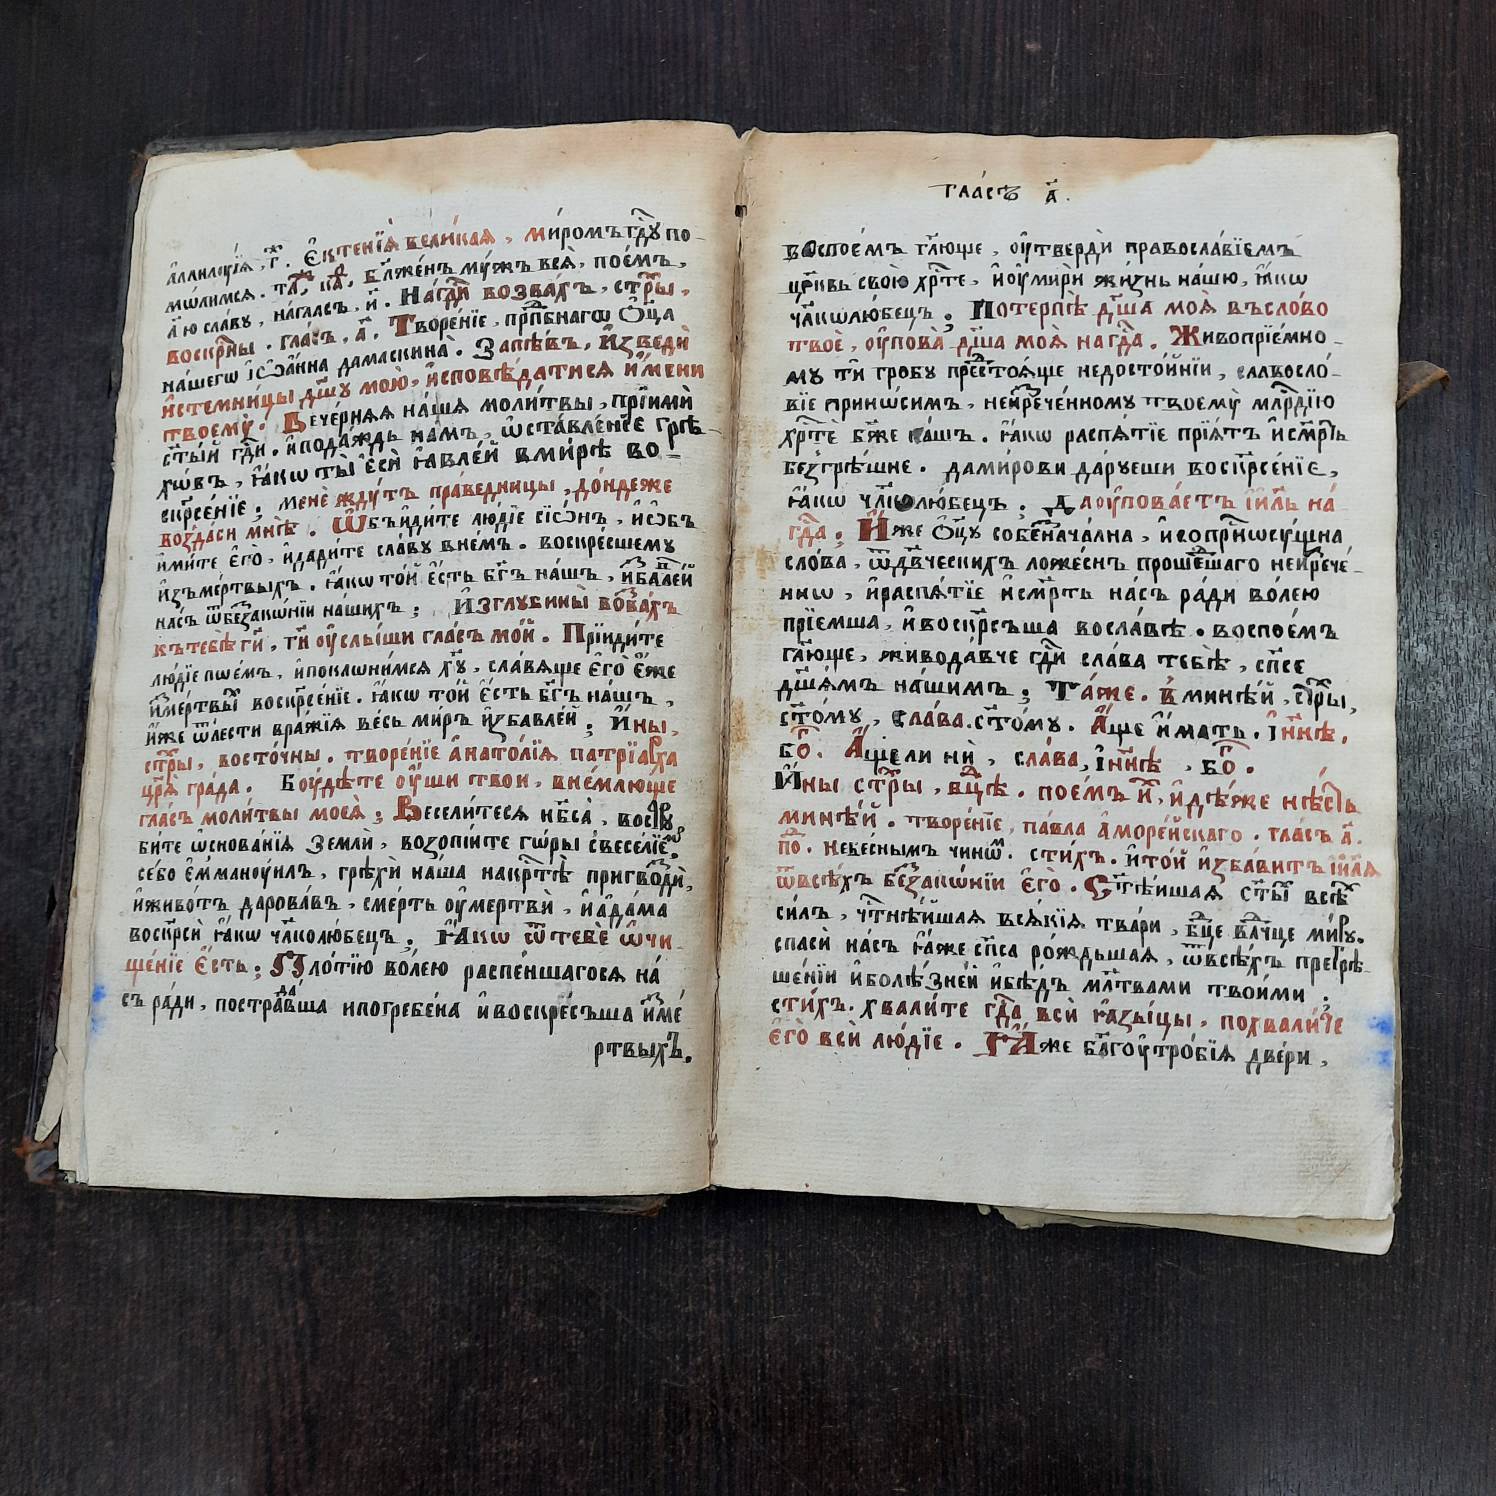 а҆ллилꙋ́їѧ, г҃. Е҆ктенїѧ̀ вели́каѧ, ми́ромъ гд҇ꙋ по-
мо́лимсѧ. гл҃. ка҃. бл҃же́нъ мꙋ́жъ всѧ̀, пое́мъ,
а҃ ю сла́вꙋ, нагла́съ, и҃. На гд҇и возва́хъ, стр҇ы,
воскр҇ны. гла́съ, а҃. Творе́нїе, прпⷣбнагѡ ѻ҆ц҃а
на́шегѡ і҆ѡа́нна дамаскина̀. Запѣ́въ, И҆зведѝ
и҆стемни́цы дш҃ꙋ мою̀, и҆сповѣ́датисѧ и҆́мени
твоемꙋ̀. Вече́рнѧѧ на́шѧ моли́твы, прїимѝ
ст҃ы́й гд҇и. и҆пода́ждь на́мъ, ѡ҆ставле́нїе грѣ-
хѡ́въ, ꙗ҆́кѡ ты̀ є҆сѝ ꙗ҆вле́й вми́рѣ во-
скр҇се́нїе. менѐ ждꙋ́тъ пра́ведницы, до́ндеже
возда́си мнѣ̀. Ѡ҆бъиди́те лю́дїе сїѡ́нъ, и҆ѡ҆бъ
ими́те є҆го̀, и҆дади́те сла́вꙋ вне́мъ. воскре́сшемꙋ
и҆зъме́ртвыхъ. ꙗ҆́кѡ то́й є҆́сть бг҃ъ на́шъ, и҆зба́влей
на́съ ѿбеззако́нїи на́шихъ; И҆зглꙋбины̀ возва́хъ
къ тебѣ̀ гд҇и, гд҇и ᲂу҆слы́ши гла́съ мо́й. Прїиди́те
лю́дїе пое́мъ, и҆поклони́мсѧ хр҇тꙋ̀, сла́вѧще є҆го̀ є҆́же
и҆зме́ртвыⷯ воскр҇се́нїе. ꙗ҆́кѡ то́й є҆́сть бг҃ъ на́шъ,
и҆́же ѿле́сти вра́жїѧ ве́сь ми́ръ и҆зба́влей; И҆́ны,
стр҇ы, восто́чны. творе́нїе а҆нато́лїѧ патрїа́рха
цр҃ѧ гра́да. Бꙋ́дѣте ᲂу҆́ши твои, вне́млюще
гла́съ моли́твы моеѧ̀; Весели́тесѧ нб҃са̀, вострꙋ
би́те ѡ҆снова́нїѧ землѝ, возопі́йте го́ры свесе́лїе.
се́бо є҆ммано́уилъ, грѣхѝ на́ша накр҇тѣ̀ пригвоздѝ,
и҆живо́тъ дарова́въ, сме́рть ᲂу҆мертвѝ, и҆а҆да́ма
воскр҇сѝ ꙗ҆́кѡ чл҃колю́бецъ; Ꙗ҆́кѡ ѿтебѐ ѡ҆чи-
ще́нїе є҆́сть; Пло́тїю во́лею распе́ншагосѧ на́
съ ра́ди, пострада́вша и погребе́на и҆воскре́съша и҆зме́
ртвыхъ.
гла́съ а҃.
воспое́мъ гл҃юще, ᲂу҆твердѝ правосла́вїемъ
цр҃ковь свою̀ хр҇те, и҆ᲂу҆мирѝ жи́знь на́шю, ꙗ҆́кѡ
чл҃колю́бецъ; Потерпѣ̀ дш҃а моѧ̀ въ сло́во
твоѐ, ᲂу҆пова̀ дш҃а моѧ̀ на гд҇а. Живопрїе́мно-
мꙋ ти̑ гро́бꙋ предстоѧ́ще недосто́йнїи, славосло́-
вїе прино́симъ, неизрече́нномꙋ твоемꙋ̀ млⷭ҇рдїю
хр҇тѐ бж҃е на́шъ. ꙗ҆́кѡ распѧ́тїе прїѧ́тъ и҆см҃рть
безгрѣ́шне. да ми́рови да́рꙋеши воскр҇се́нїе,
ꙗ҆́кѡ чл҃колю́бецъ. Да ᲂу҆пова́етъ і҆и҃ль на́
гд҇а. И҆́же ѻ҆ц҃ꙋ собезнача́лна, и҆соприсносꙋ́щна
сло́ва, ѿдв҃ческихъ ложе́снъ проше́дшаго неизрече́-
ннѡ, и҆распѧ́тїе и҆см҃рть на́съ ра́ди во́лею
прїе́мша, и҆воскр҇съша восла́вѣ. воспое́мъ
гл҃юще, живода́вче гд҇и сла́ва тебѣ̀, сп҃се
дш҃а́мъ на́шимъ; Та́же. В мине́й, стр҇ы,
ст҃о́мꙋ, сла́ва. ст҃о́мꙋ. А҆́ще и҆́мать. І҆ ны́нѣ.
бо҃. А҆́щели нѝ, сла́ва, і҆ ны́нѣ, бо҃.
И҆́ны стр҇ы, бц҃ѣ. пое́мъ и҆́х, и҆дѣ́же нѣ́сть
мине́й. творе́нїе, па́вла а҆море́йскаго. гла́съ а҃.
поⷣ. небе́снымъ чинѡ́м. сти́хъ. и҆то́й и҆зба́витъ і҆и҃лѧ
ѿвсѣ́хъ беззако́нїи є҆го̀. Ст҃ѣ́йшая ст҃ы́х всѣ́х
си́лъ, чⷭ҇тнѣ́йшая всѧ́кїѧ тва́ри, бц҃е влⷣчце ми́рꙋ.
спасѝ на́съ ꙗ҆́же сп҃са ро́ждьшая, ѿвсѣ́хъ прегрѣ-
ше́нїи и҆болѣ́зней и҆бѣ́дъ мл҃твами твои́ми.
сти́хъ. хвали́те гд҇а всѝ ꙗ҆зы́цы, похвали́те
є҆го̀ всѝ лю́дїе. Ꙗ҆́же бл҃гоᲂутро́бїѧ две́ри,